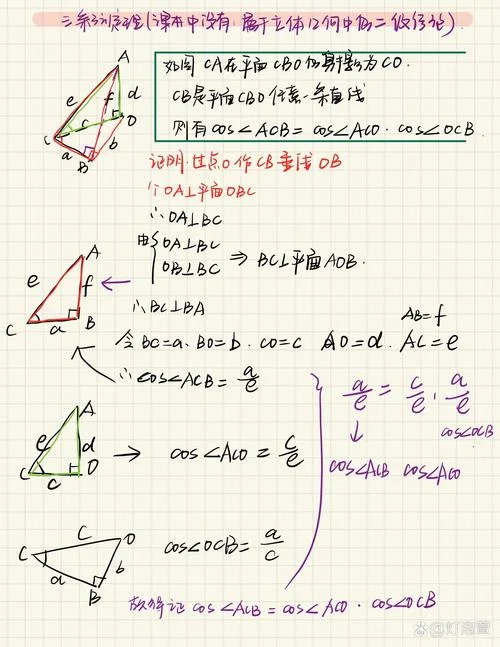 三余弦定理(课本中没有,属于立体几何中的二级结论)
如图 CA在平面CBO的射影为CO.
CB是平面CBO任意一条直线
则有cos∠ACB=cos∠ACO·cos∠OCB
A
e
f
d
c
O
C
a
B
b
证明:过点O作CB垂线OB
∵OA⊥平面OBC
∴OA⊥BC
由{OA⊥BC
OB⊥BC ⇒ BC⊥平面AOB.
∴BC⊥BA
A
e
f
C
a
B
令BC=a、BO=b. CO=c AO=d. AC=e
AB=f
∴cos∠ACB=a/e
A
e
d
C
c
O
→ cos∠ACO=c/e
a/e = c/e · a/e
↓
cos∠OCB
cos∠ACB cos∠ACO
C
c
O
a
b
B
cos∠OCB=a/c
故得证 cos∠ACB=cos∠ACO·cos∠OCB
百家号/灯泡萱